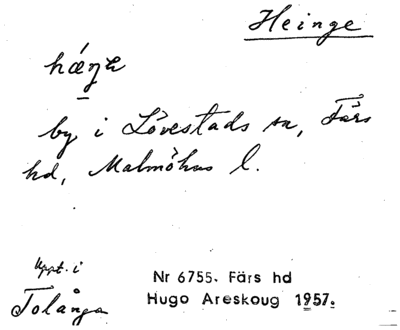 Heinge
hǽŋɐ
by i Lövestads sn, Färs
hd, Malmöhus l.
Uppt. i
Tolånga
Nr 6755. Färs hd
Hugo Areskoug 1957.